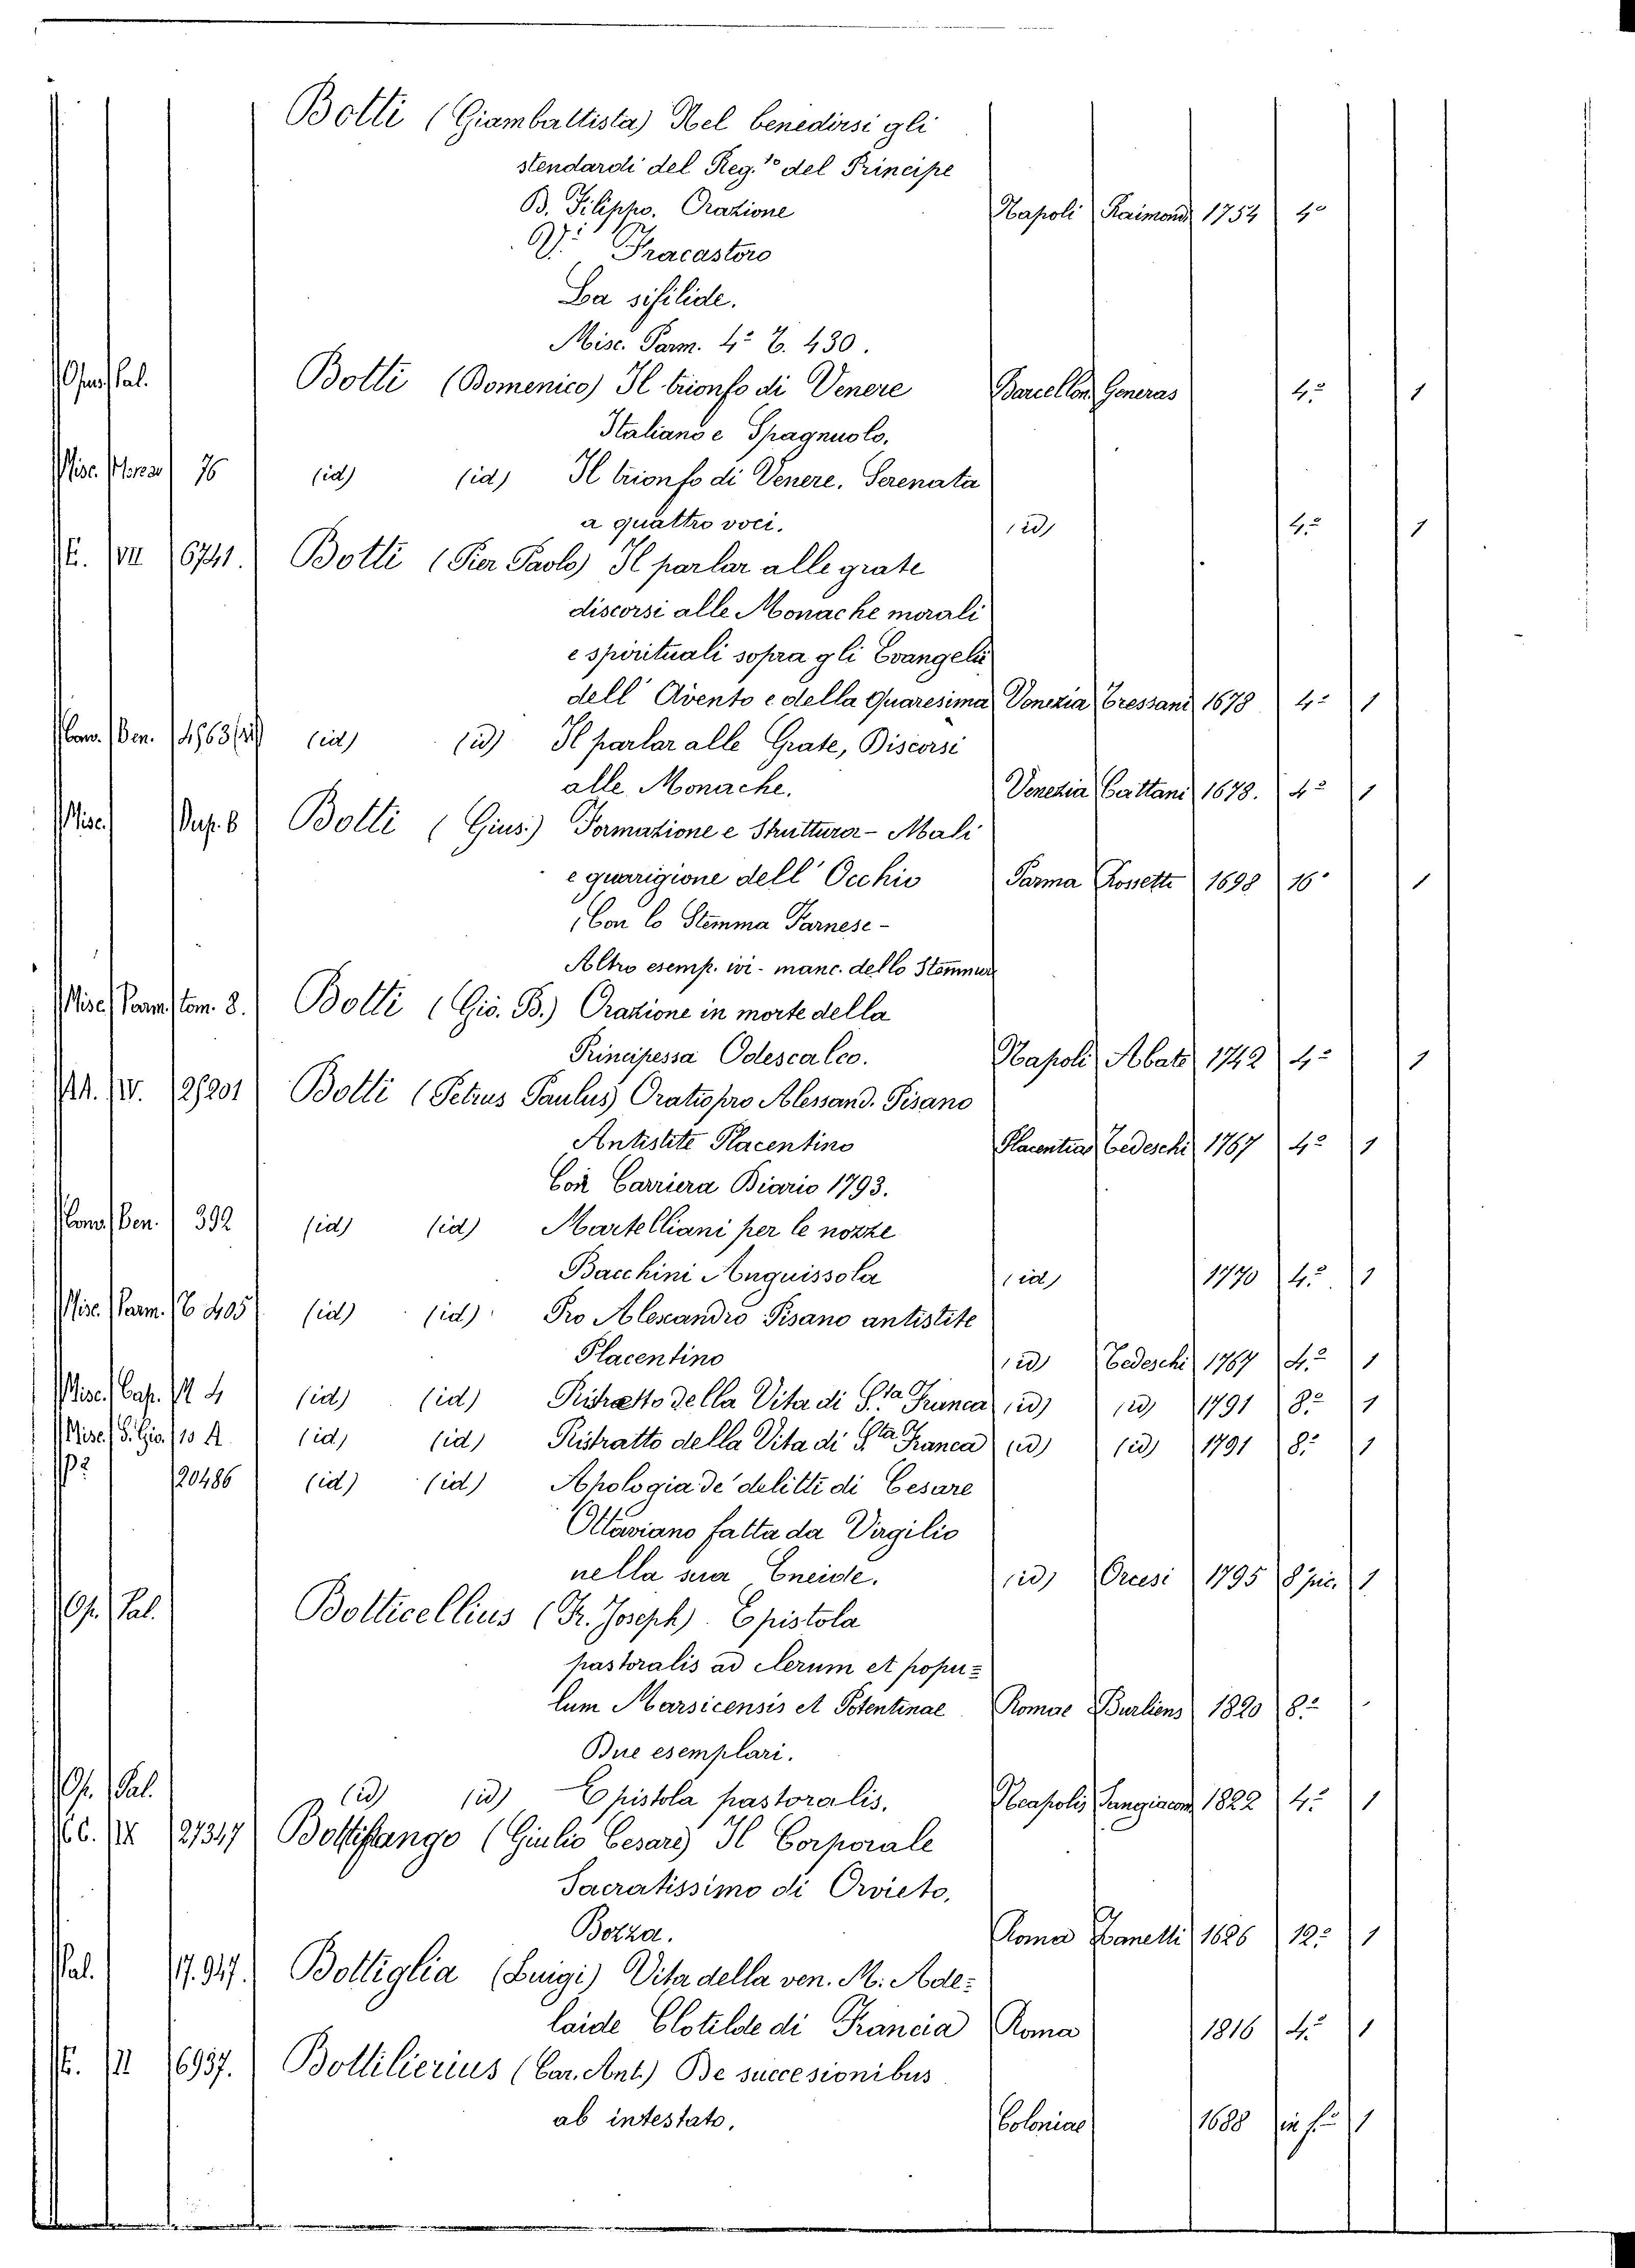 Botti (Giambattista) Nel benedirsi gli
stendardi del Reg.to del Principe
D. Filippo. Orazione Napoli Raimondi 1754 4°
V. Fracastoro
La sifilide.
Misc. Parm. 4° T. 430.
Pal. Botti (Domenico) Il trionfo di Venere Barcellon Generas 4° 1
Italiano e Spagnuolo.
Misc. 76 (id) (id) Il trionfo di Venere. Serenata
a quattro voci. (id) 4° 1
E. VII 6741. Botti (Pier Paolo) Il parlar alle grate
discorsi alle Monache morali
e spirituali sopra gli Evangelii
dell' Avento e della Quaresima Venezia Tressani 1678 4° 1
Conv. Ben. (id) (id) Il parlar alle Grate, Discorsi
alle Monache. Venezia Cattani 1678. 4° 1
Misc. Dup. 6 Botti (Gius.) Formazione e Struttura - Mali
e guarigione dell' Occhio Parma Rossetti 1698 16° 1
Con lo Stemma Farnese -
Altro esemp. ivi - manc. dello Stemma
Misc. Parm. tom. 8. Botti (Gio. B.) Orazione in morte della
Principessa Odescalco. Napoli Abate 1742 4° 1
IV. 29201 Botti (Petrus Paulus) Oratio pro Alessand. Pisano
Antistite Placentino Placentiae Tedeschi 1767 4° 1
Con Carriera Diario 1793.
Conv. Ben. 392 (id) (id) Martelliani per le nozze
Bacchini Anguissola (id) 1770 4° 1
Misc. Parm. T. 405 (id) (id) Pro Alexandro Pisano antistite
Placentino (id) Tedeschi 1767 4° 1
Misc. Cap. M 4 (id) (id) Ristratto della Vita di S.ta Franca (id) (id) 1791 8° 1
Misc. S. Gio. 10 A (id) (id) Ristratto della Vita di S.ta Franca (id) (id) 1791 8° 1
P2 20486 (id) (id) Apologia de' delitti di Cesare
Ottaviano fatta da Virgilio
nella sua Eneide. (id) Orcesi 1795 8 pic. 1
Op. Pal. Botticellius (Fr. Joseph). Epistola
pastoralis ad clerum et popu=
lum Marsicensis et Potentinae Romae Burliens 1820 8°
Due esemplari.
Op. Pal. (id) (id) Epistola pastoralis. Neapolis Sangiacom 1822 4° 1
CC. IX 27347 Bottifango (Giulio Cesare) Il Corporale
Sacratissimo di Orvieto,
Bozza. Roma Zanetti 1626 12° 1
Pal. 17.947. Bottiglia (Luigi) Vita della ven. M. Ade=
laide Clotilde di Francia Roma 1816 4° 1
E. II 6937. Bottilierius (Car. Ant.) De succesionibus
ab intestato, Coloniae 1688 in f.° 1